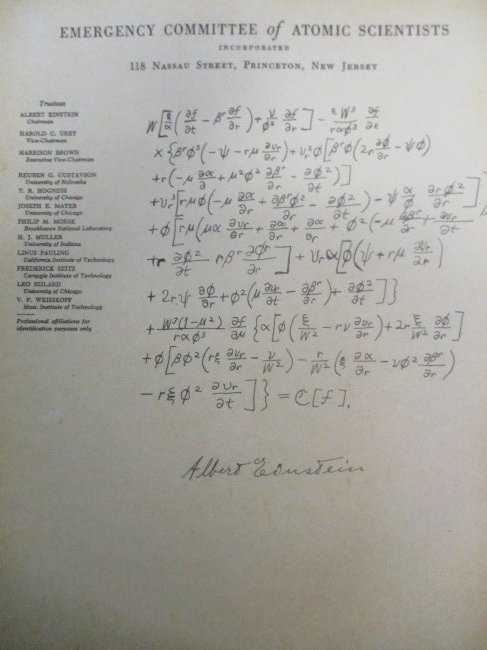 EMERGENCY COMMITTEE of ATOMIC SCIENTISTS
INCORPORATED
118 NASSAU STREET, PRINCETON, NEW JERSEY
Trustees
ALBERT EINSTEIN
Chairman
HAROLD C. UREY
Vice-Chairman
HARRISON BROWN
Executive Vice-Chairman
REUBEN G. GUSTAVSON
University of Nebraska
T. R. HOGNESS
University of Chicago
JOSEPH E. MAYER
University of Chicago
PHILIP M. MORSE
Brookhaven National Laboratory
H. J. MULLER
University of Indiana
LINUS PAULING
California Institute of Technology
FREDERICK SEITZ
Carnegie Institute of Technology
LEO SZILARD
University of Chicago
V. F. WEISSKOPF
Mass. Institute of Technology
Professional affiliations for
identification purposes only
W[ξ/α(∂f/∂t − βʳ ∂f/∂r) + ν/ϕ² ∂f/∂r] − εW³/rαϕ³ ∂f/∂ε
× {βʳϕ³(−ψ − rμ ∂vr/∂r) + vr²ϕ[βʳϕ(2r ∂ϕ/∂r − ψϕ)
+ 2rψ ∂ϕ/∂r + ϕ²(μ ∂vr/∂r − ∂βʳ/∂r) + ∂ϕ²/∂t]}
+ W³(1−μ²)/rαϕ³ ∂f/∂μ {α[ϕ(ξ/W² − rν ∂vr/∂r) + 2r ξ/W² ∂ϕ/∂r]
+ ϕ[βϕ²(rξ ∂vr/∂r − ν/W²) − r/W²(ξ ∂α/∂r − νϕ² ∂βʳ/∂r)
− rξϕ² ∂vr/∂t]} = ℭ[f],
Albert Einstein